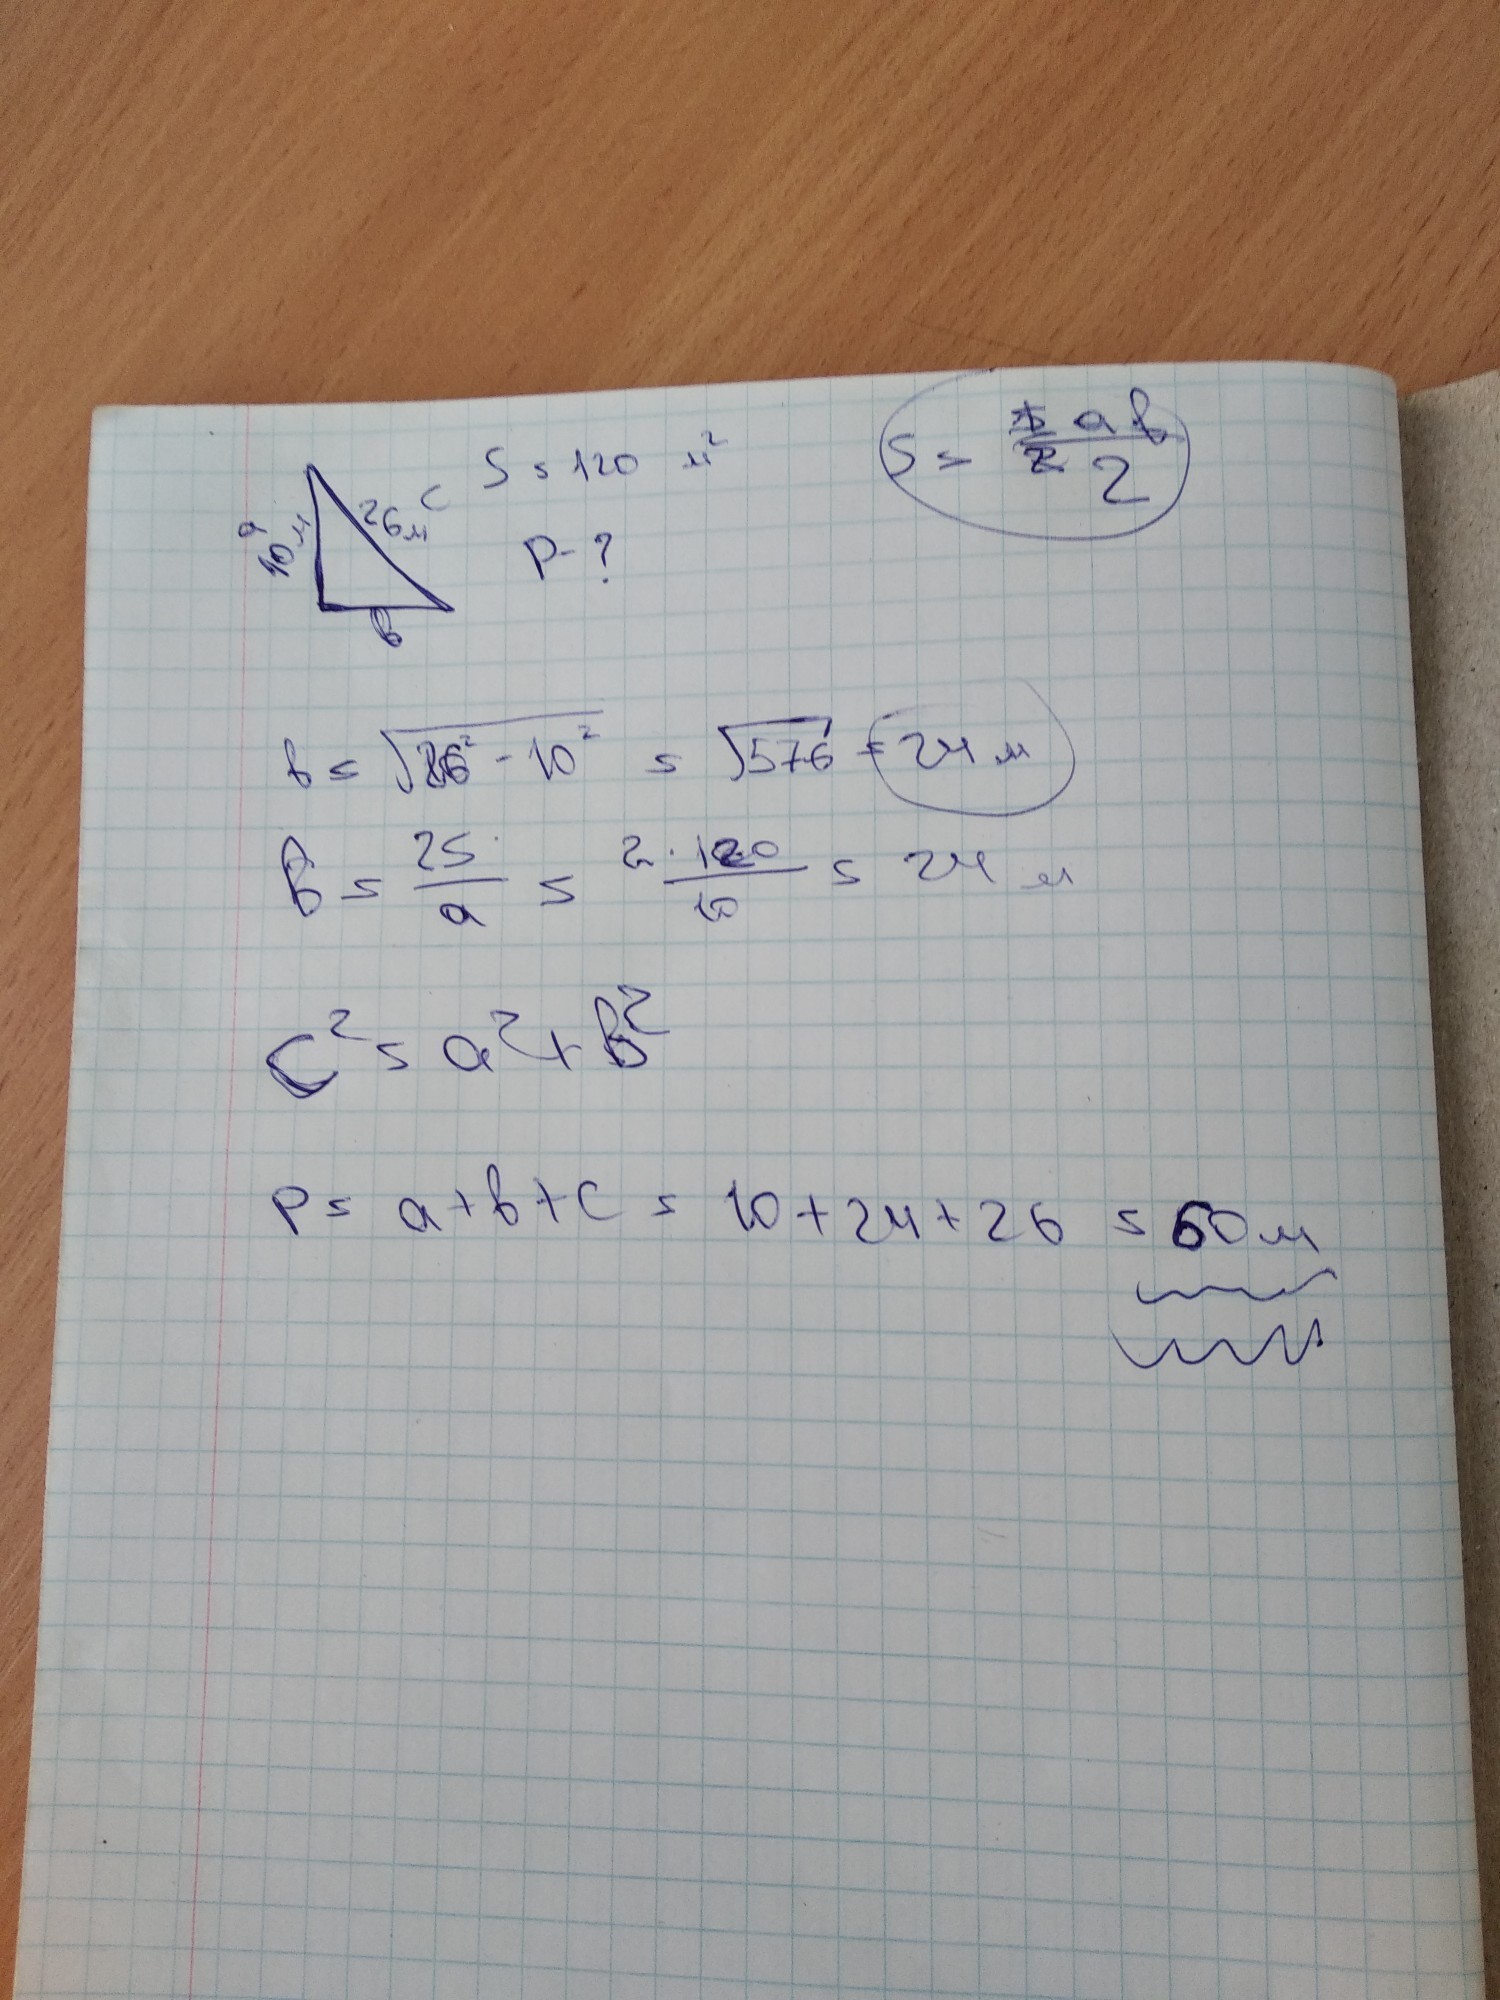 a 10м 26м c S = 120 м² S = ab/2
P - ?
в
в = √26² - 10² = √576 = 24 м
в = 2S/a = 2·120/10 = 24 м
c² = a² + в²
P = a + в + c = 10 + 24 + 26 = 60 м